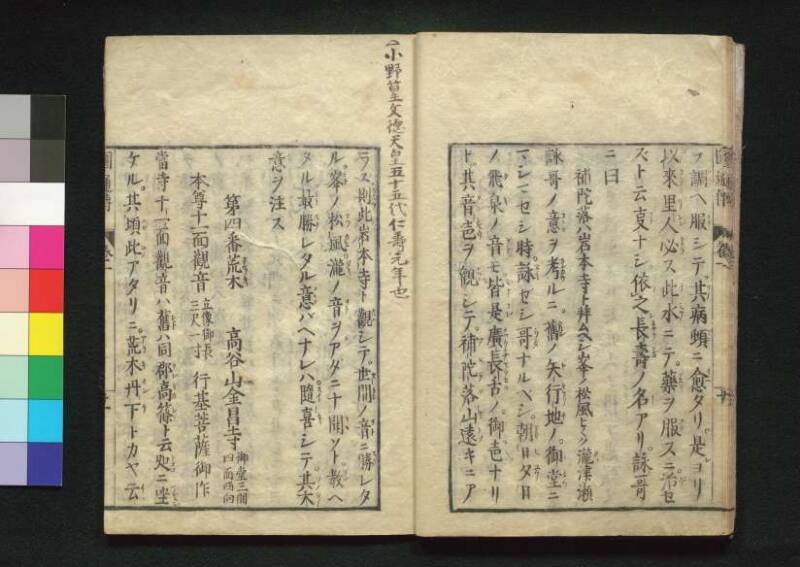 ノ調ヘ服シテ其病頓ニ愈タリ是ヨリ
以来里人必ス此水ニテ藥ヲ服スニ治セ
スト云支ナシ依之長壽ノ名アリ詠哥
ニ曰
補陀落ハ岩本寺ト拜ムヘシ峯ノ松風ヒヾク瀧津瀬
詠哥ノ意ヲ考ルニ舊ノ矢行地ノ御堂ニ
マシマセシ時詠セシ哥ナルヘシ朝日夕日
ノ飛泉ノ音モ皆是廣長舌ノ御色ナリ
ト其音色ヲ觀シテ補陀落山遠キニア
ラス則此岩本寺ト觀シテ世間ノ音ニ勝レタ
ル峯ノ松風瀧ノ音ヲアタニナ聞ソト教ヘ
タル最勝レタル意バヘナレハ隨喜シテ其大
意ヲ注ス
第四番荒木 高谷山金昌寺 御堂三間四面西向
本尊十一面觀音 立像御長三尺一寸 行基菩薩御作
當寺十一面觀音ハ舊ハ同郡高篠ト云処ニ坐
ケル其頃此アタリニ荒木丹下トカヤ云
小野篁文德天皇五十五代仁壽元年也